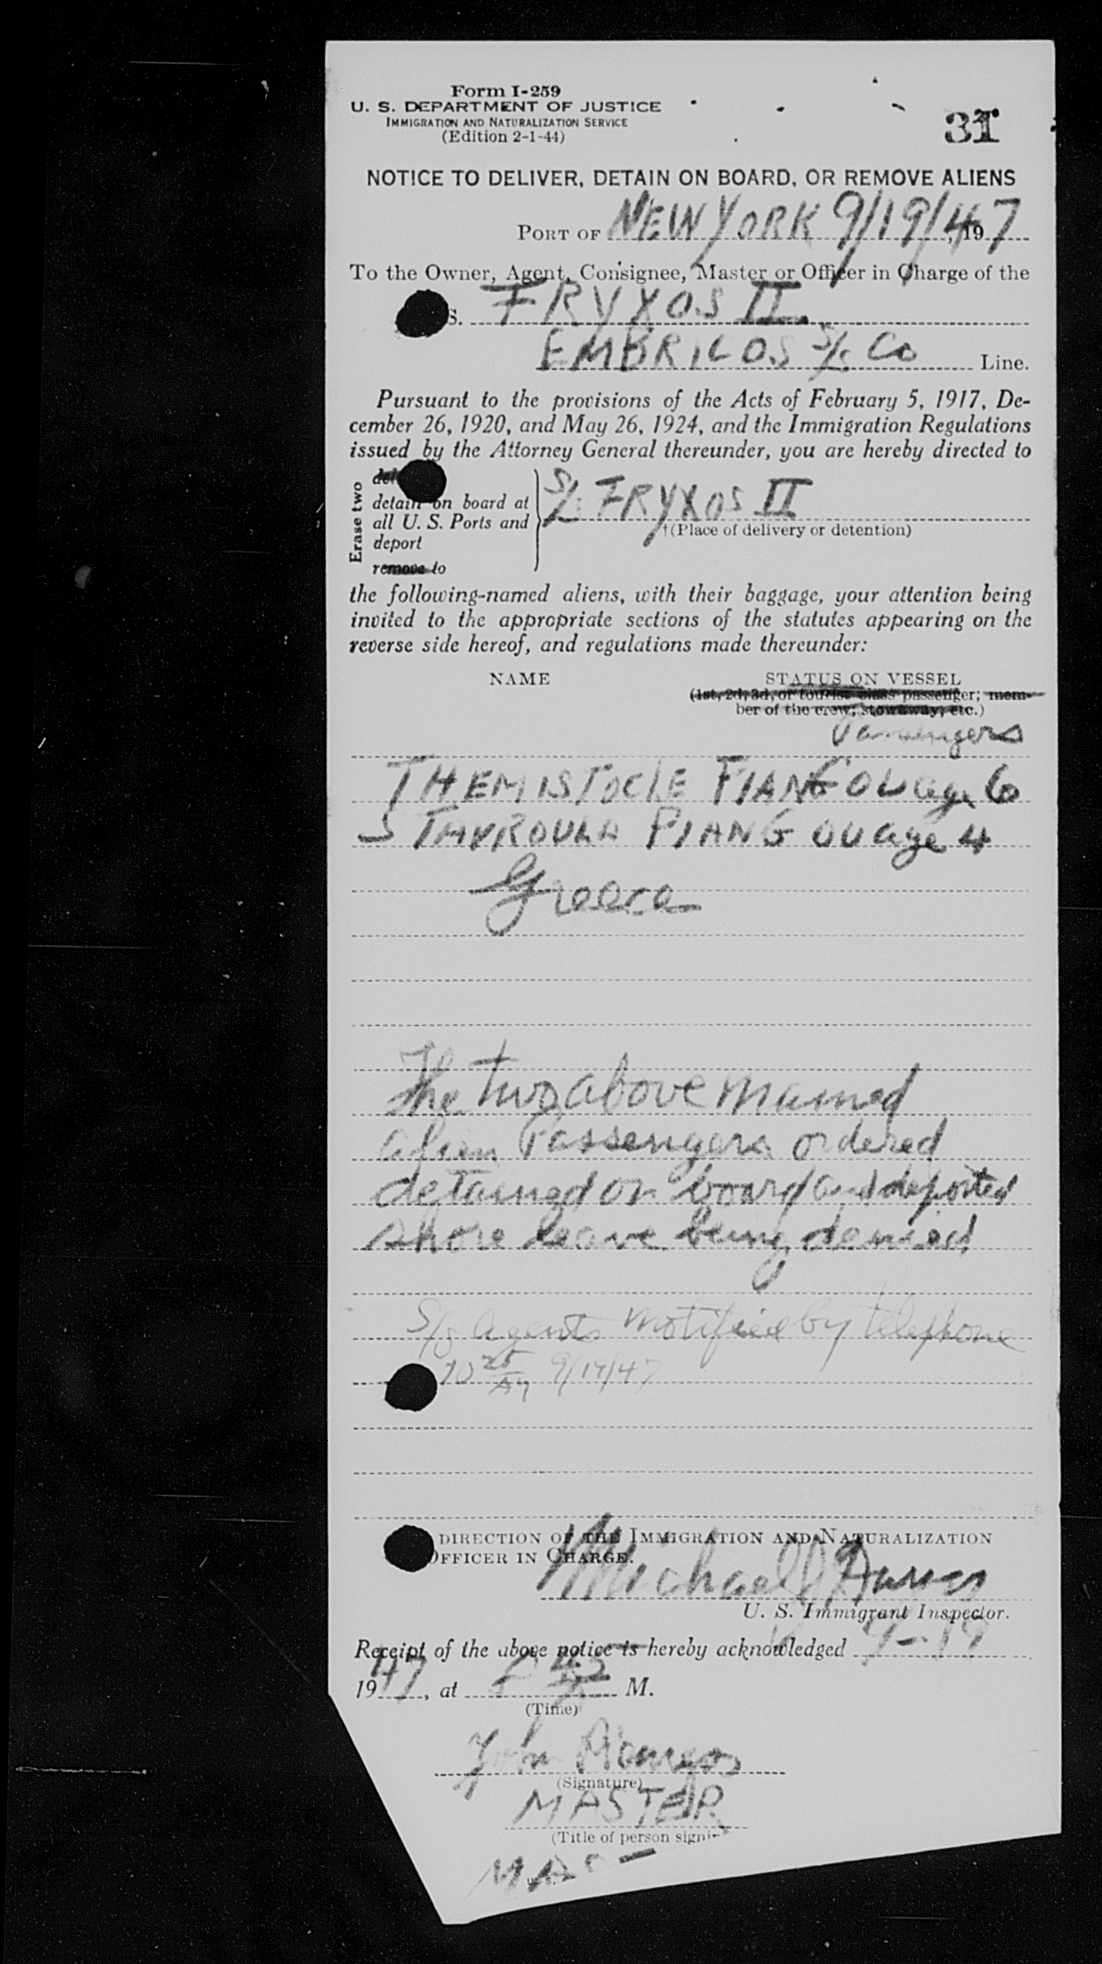 Form I-259
U. S. DEPARTMENT OF JUSTICE
IMMIGRATION AND NATURALIZATION SERVICE
(Edition 2-1-44)
31
NOTICE TO DELIVER, DETAIN ON BOARD, OR REMOVE ALIENS
PORT OF NEW YORK 9/19/47, 197
To the Owner, Agent, Consignee, Master or Officer in Charge of the
S. FRYXOS II
EMBRICOS S/S Co Line.
Pursuant to the provisions of the Acts of February 5, 1917, De-
cember 26, 1920, and May 26, 1924, and the Immigration Regulations
issued by the Attorney General thereunder, you are hereby directed to
Erase two
detain on board at
all U. S. Ports and
deport
remove to
S/S FRYXOS II
†(Place of delivery or detention)
the following-named aliens, with their baggage, your attention being
invited to the appropriate sections of the statutes appearing on the
reverse side hereof, and regulations made thereunder:
NAME STATUS ON VESSEL
(1st, 2d, 3d, or tourist class passenger; mem-
ber of the crew; stowaway; etc.)
Passengers
THEMISTOCLE PIANGOU age 6
STAVROULA PIANGOU age 4
Greece
The two above mamed
alien Passengers ordered
detained on board and deported
shore leave being denied
S/S agents notified by telephone
10 25 AM 9/19/47
DIRECTION OF THE IMMIGRATION AND NATURALIZATION
OFFICER IN CHARGE.
Michael J
U. S. Immigrant Inspector.
Receipt of the above notice is hereby acknowledged 9-19
1947, at M.
(Time)
John
(Signature)
MASTER
(Title of person signi